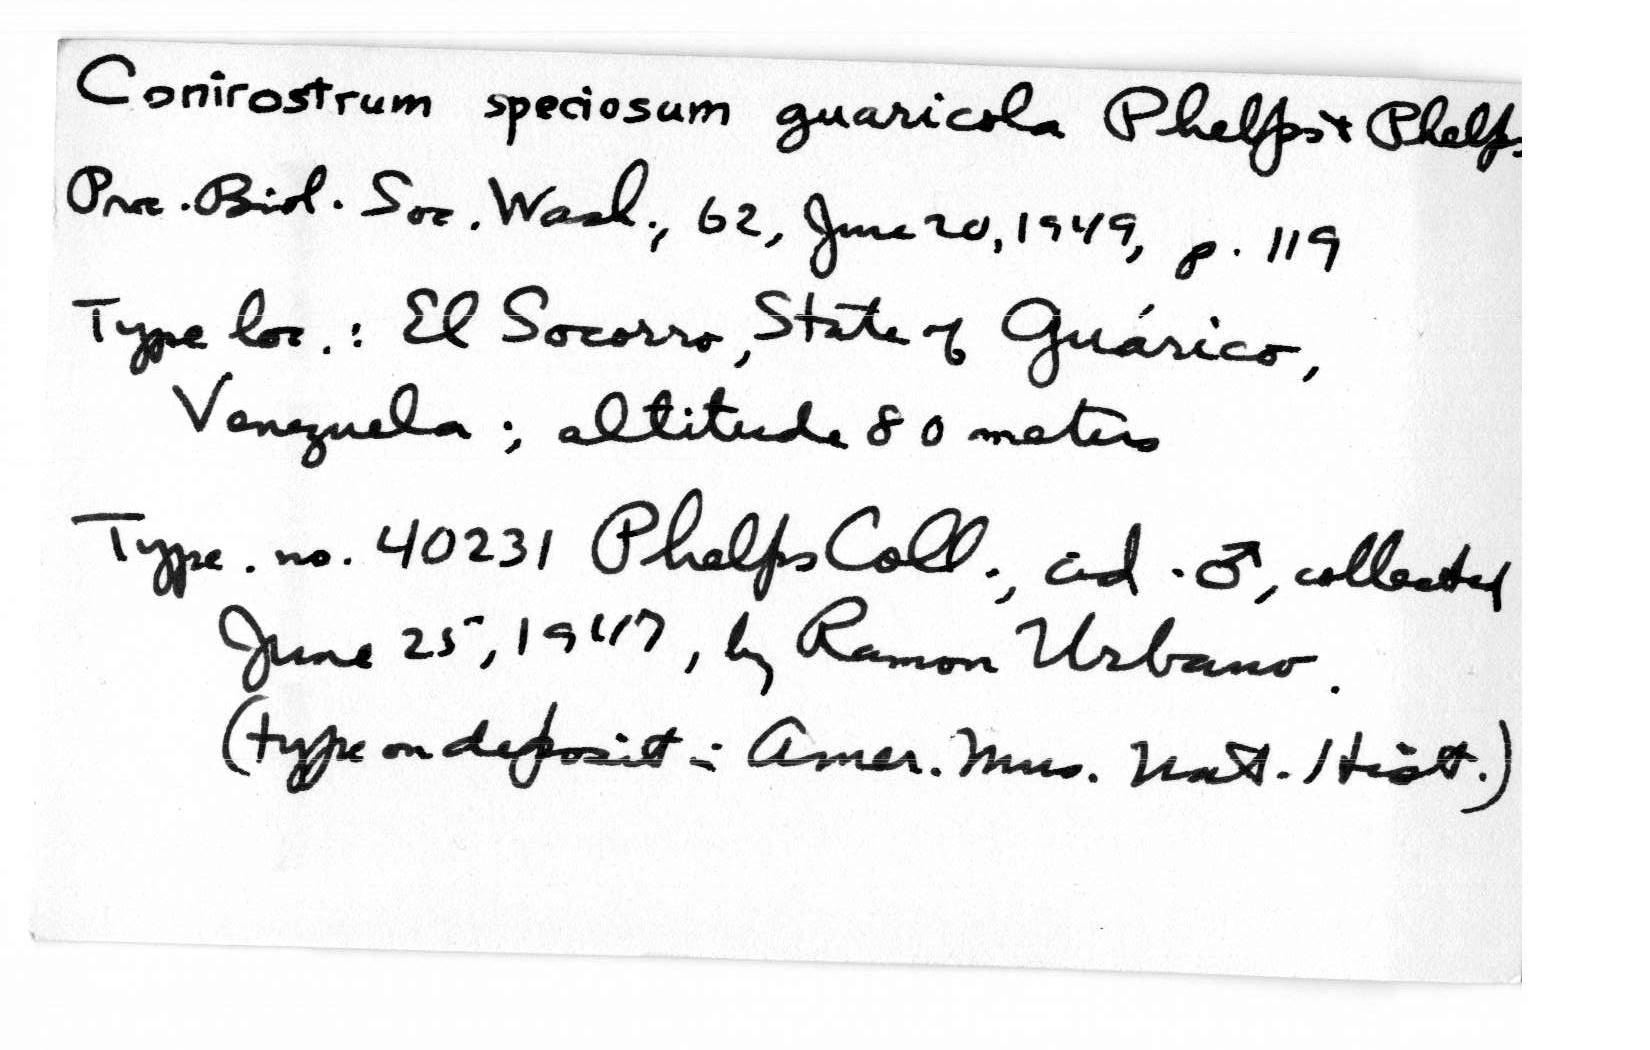 Conirostrum speciosum guaricola Phelps + Phelps
Proc. Biol. Soc. Wash., 62, June 20, 1949, p. 119
Type loc.: El Socorro, State of Guárico,
Venezuela; altitude 80 meters
Type. no. 40231 Phelps Coll., ad. ♂, collected
June 25, 1947, by Ramon Urbano.
(type on deposit: Amer. Mus. Nat. Hist.)